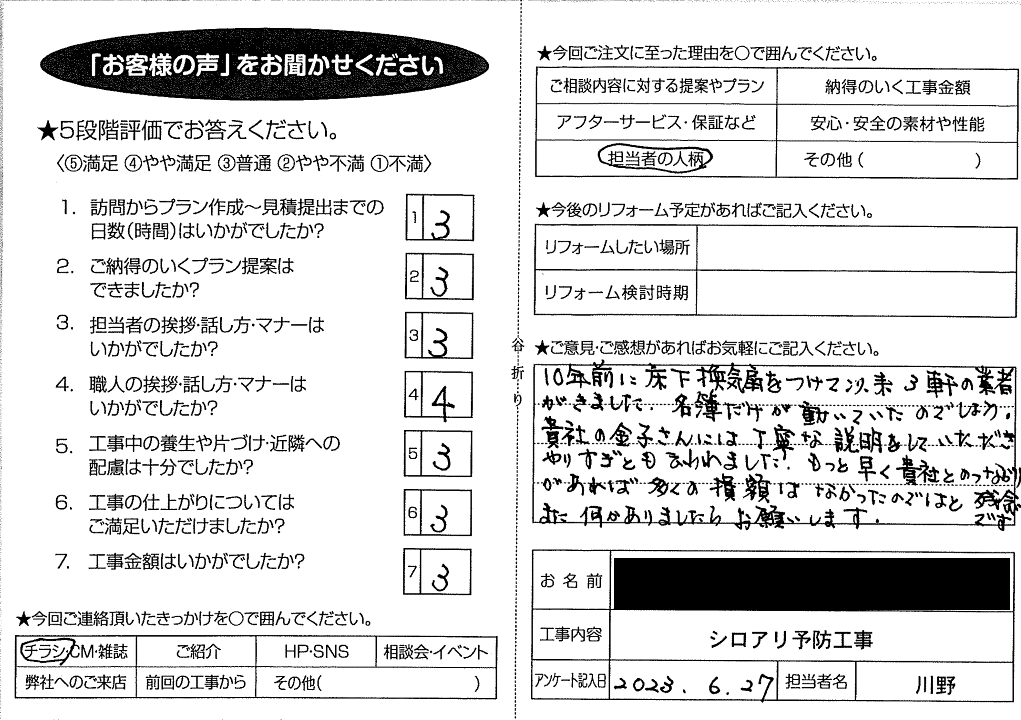 「お客様の声」をお聞かせください
★5段階評価でお答えください。
〈⑤満足 ④やや満足 ③普通 ②やや不満 ①不満〉
1. 訪問からプラン作成〜見積提出までの
日数(時間)はいかがでしたか?
1 3
2. ご納得のいくプラン提案は
できましたか?
2 3
3. 担当者の挨拶・話し方・マナーは
いかがでしたか?
3 3
4. 職人の挨拶・話し方・マナーは
いかがでしたか?
4 4
5. 工事中の養生や片づけ・近隣への
配慮は十分でしたか?
5 3
6. 工事の仕上がりについては
ご満足いただけましたか?
6 3
7. 工事金額はいかがでしたか?
7 3
★今回ご連絡頂いたきっかけを○で囲んでください。
チラシ・CM・雑誌 ご紹介 HP・SNS 相談会・イベント
弊社へのご来店 前回の工事から その他( )
谷折り
★今回ご注文に至った理由を○で囲んでください。
ご相談内容に対する提案やプラン 納得のいく工事金額
アフターサービス・保証など 安心・安全の素材や性能
担当者の人柄 その他( )
★今後のリフォーム予定があればご記入ください。
リフォームしたい場所
リフォーム検討時期
★ご意見・ご感想があればお気軽にご記入ください。
10年前に床下換気扇をつけて以来3軒の業者
がきました。名簿だけが動いていたのでしょう。
貴社の金子さんには丁寧な説明をしていただき
やりすぎとも云われました。もっと早く貴社とのつながり
があれば多くの損額はなかったのではと残念です
また何かありましたらお願いします。
お名前
工事内容 シロアリ予防工事
アンケート記入日 2023.6.27 担当者名 川野